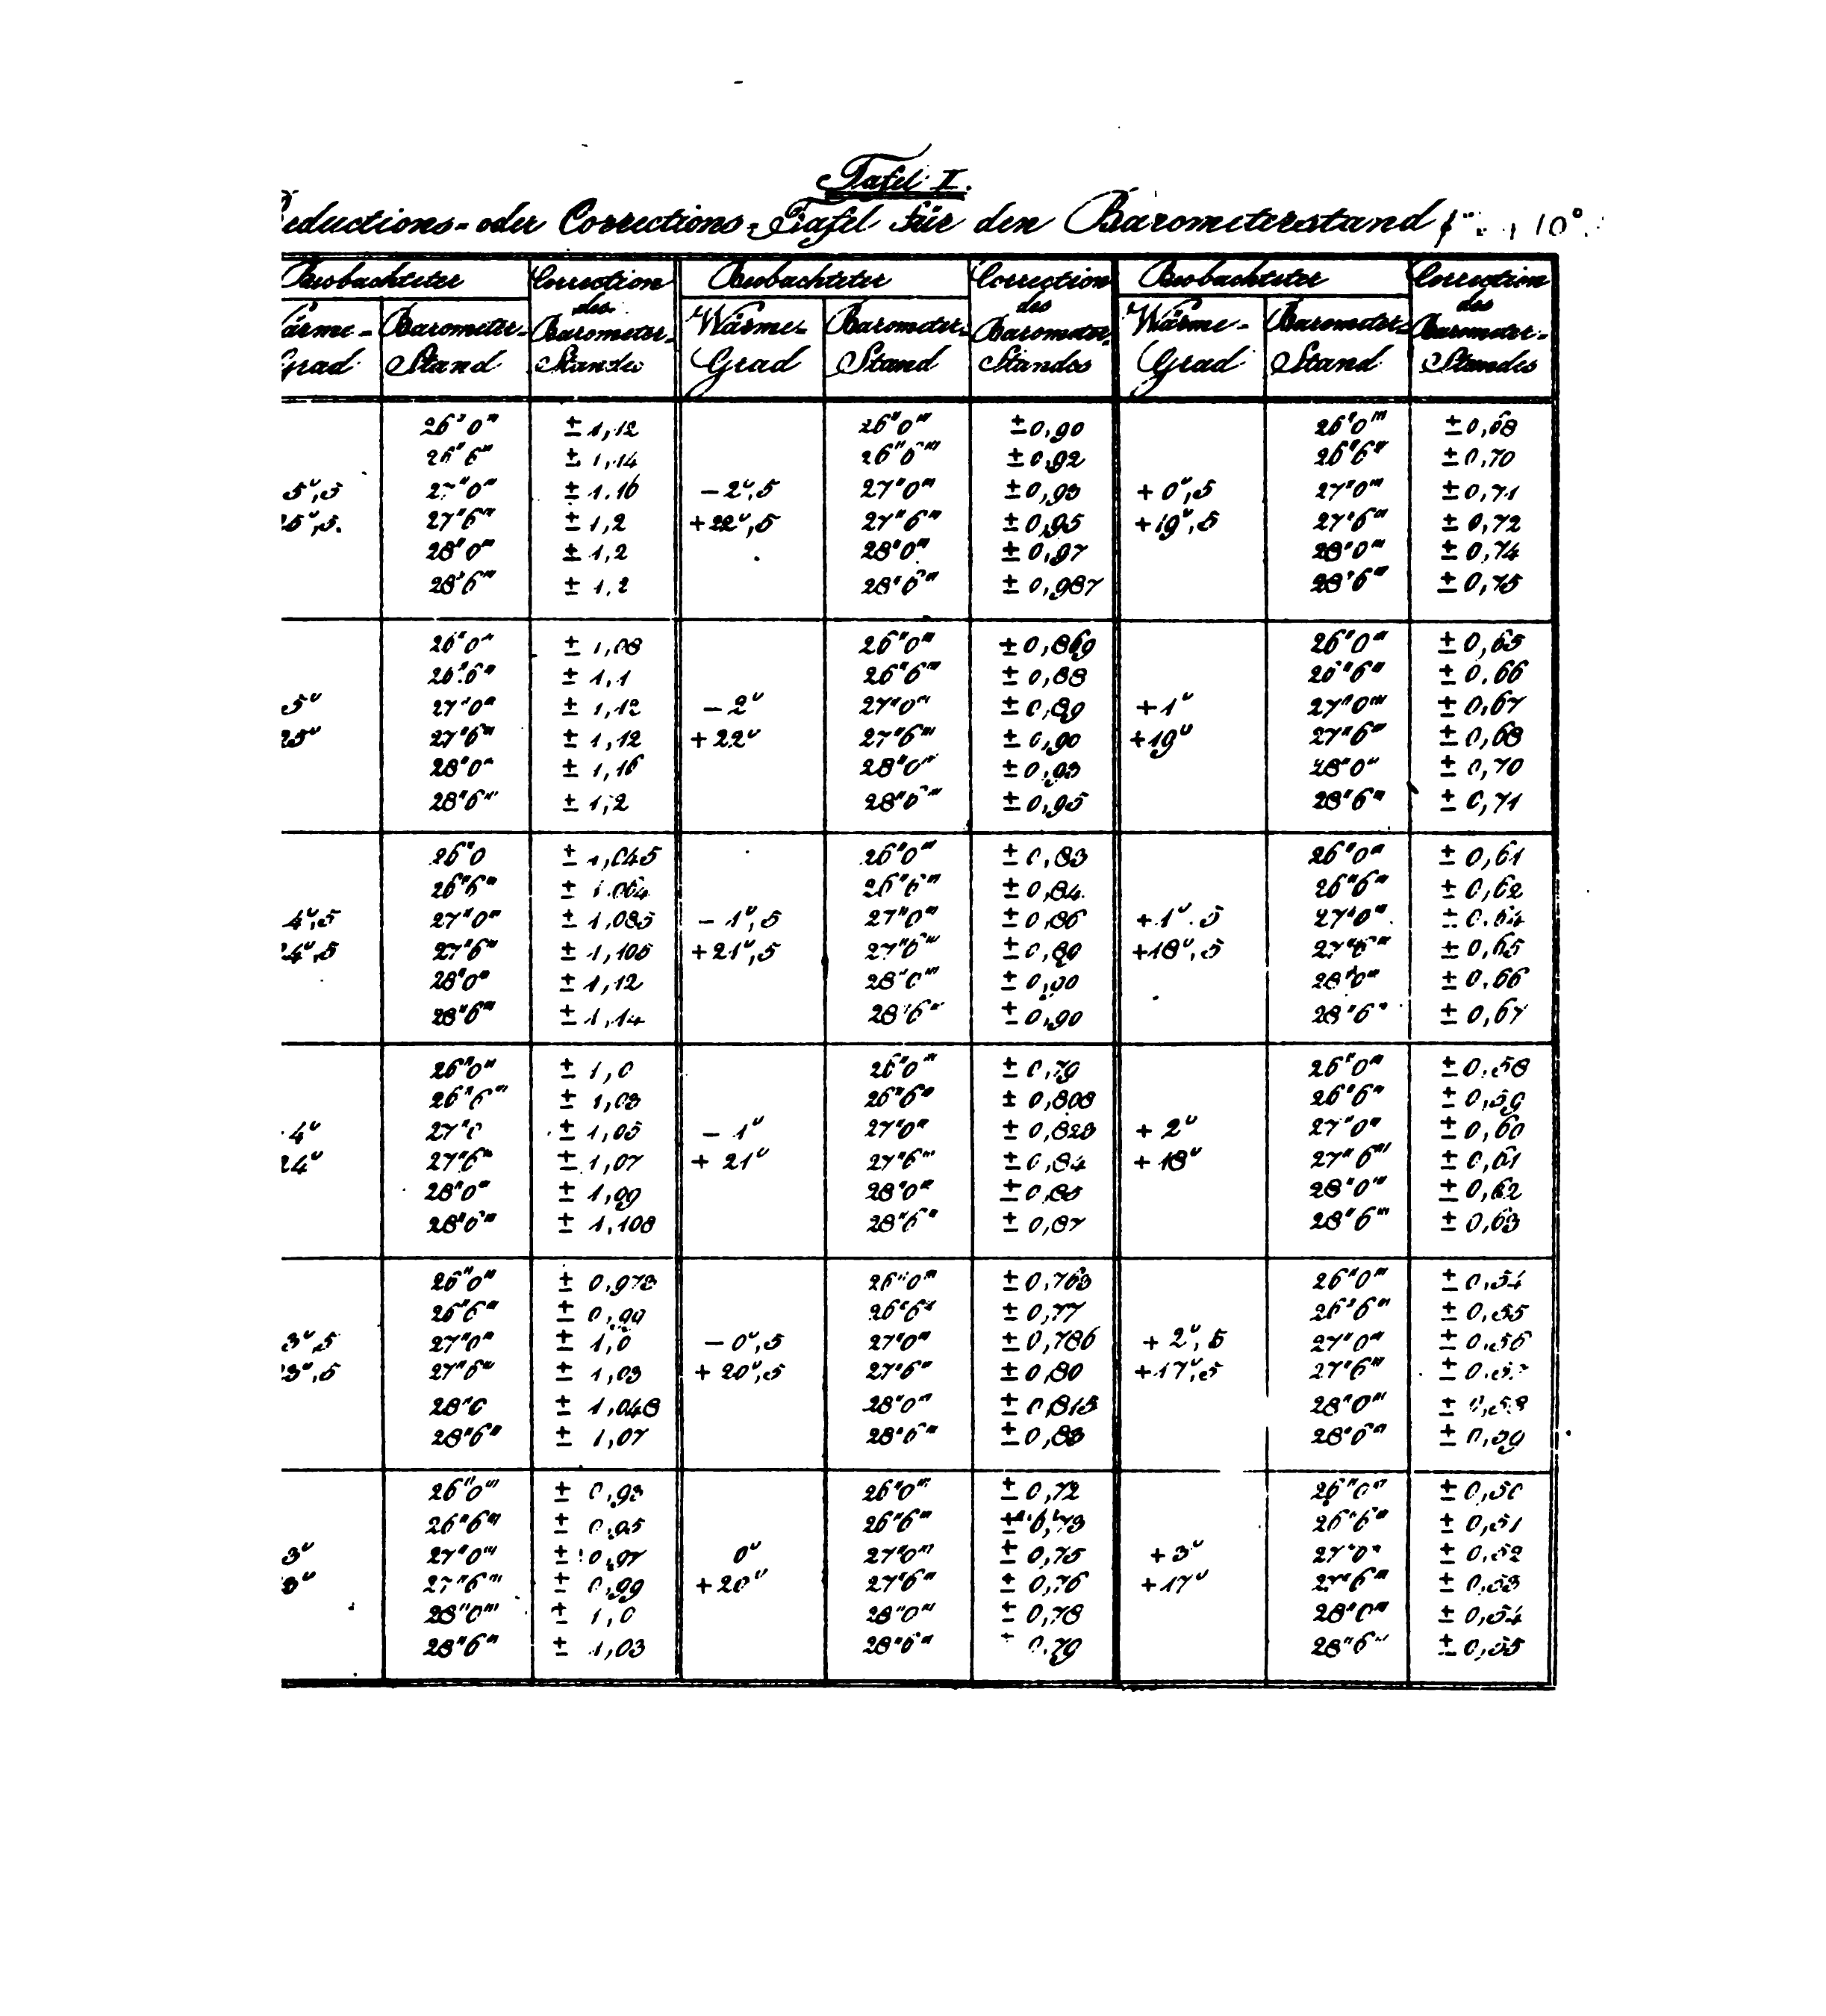 Tafel I.
Reductions- oder Corrections-Tafel für den Barometerstand + 10°
Beobachteter Correction des Barometer-Standes Beobachteter Correction des Barometer-Standes Beobachteter Correction des Barometer-Standes
Wärme-Grad Barometer-Stand Wärme-Grad Barometer-Stand Wärme-Grad Barometer-Stand
26"0''' ± 1,12 26"0''' ± 0,90 26"0''' ± 0,68
26"6''' ± 1,14 26"6''' ± 0,92 26"6''' ± 0,70
5°,5 27"0''' ± 1.16 - 2°,5 27"0''' ± 0,93 + 0°,5 27"0''' ± 0,71
25°,5. 27"6''' ± 1,2 + 22°,5 27"6''' ± 0,95 + 19°,5 27"6''' ± 0,72
28"0''' ± 1,2 28"0''' ± 0,97 28"0''' ± 0,74
28"6''' ± 1.2 28"6''' ± 0,987 28"6''' ± 0,75
26"0''' ± 1,08 26"0''' ± 0,869 26"0''' ± 0,65
26"6''' ± 1,1 26"6''' ± 0,88 26"6''' ± 0.66
5° 27"0''' ± 1,12 - 2° 27"0''' ± 0,89 + 1° 27"0''' ± 0,67
25° 27"6''' ± 1,12 + 22° 27"6''' ± 0,90 + 19° 27"6''' ± 0,68
28"0''' ± 1,16 28"0''' ± 0,93 28"0''' ± 0,70
28"6''' ± 1,2 28"6''' ± 0,95 28"6''' ± 0,71
26"0 ± 1,045 26"0''' ± 0,83 26"0''' ± 0,61
26"6''' ± 1.064 26"6''' ± 0,84 26"6''' ± 0,62
4°,5 27"0''' ± 1,085 - 1°,5 27"0''' ± 0,86 + 1°.5 27"0''' ± 0.64
24°,5 27"6''' ± 1,105 + 21°,5 27"6''' ± 0,89 + 18°,5 27"6''' ± 0,65
28"0''' ± 1,12 28"0''' ± 0,90 28"0''' ± 0.66
28"6''' ± 1,14 28"6''' ± 0,90 28"6''' ± 0,67
26"0''' ± 1,0 26"0''' ± 0,79 26"0''' ± 0.58
26"6''' ± 1,03 26"6''' ± 0,808 26"6''' ± 0,59
4° 27"0 ± 1,05 - 1° 27"0''' ± 0,823 + 2° 27"0''' ± 0,60
24° 27"6''' ± 1,07 + 21° 27"6''' ± 0,84 + 18° 27"6''' ± 0,61
28"0''' ± 1,99 28"0''' ± 0,85 28"0''' ± 0,62
28"6''' ± 1,108 28"6''' ± 0,87 28"6''' ± 0,63
26"0''' ± 0,973 26"0''' ± 0,763 26"0''' ± 0,54
26"6''' ± 0,99 26"6''' ± 0,77 26"6''' ± 0,55
3°,5 27"0''' ± 1,0 - 0°,5 27"0''' ± 0,786 + 2°,5 27"0''' ± 0,56
23°,5 27"6''' ± 1,03 + 20°,5 27"6''' ± 0,80 + 17°,5 27"6''' ±
28"0 ± 1,048 28"0''' ± 0,815 28"0''' ± 0,58
28"6''' ± 1,07 28"6''' ± 0,83 28"6''' ± 0,59
26"0''' ± 0,93 26"0''' ± 0,72 26"0''' ± 0,50
26"6''' ± 0,95 26"6''' ± 0,73 26"6''' ± 0,51
3° 27"0''' ± 0,97 0° 27"0''' ± 0,75 + 3° 27"0''' ± 0,52
27"6''' ± 0,99 + 20° 27"6''' ± 0,76 + 17° 27"6''' ± 0,53
28"0''' ± 1,0 28"0''' ± 0,78 28"0''' ± 0,54
28"6''' ± 1,03 28"6''' ± 0.79 28"6''' ± 0,55